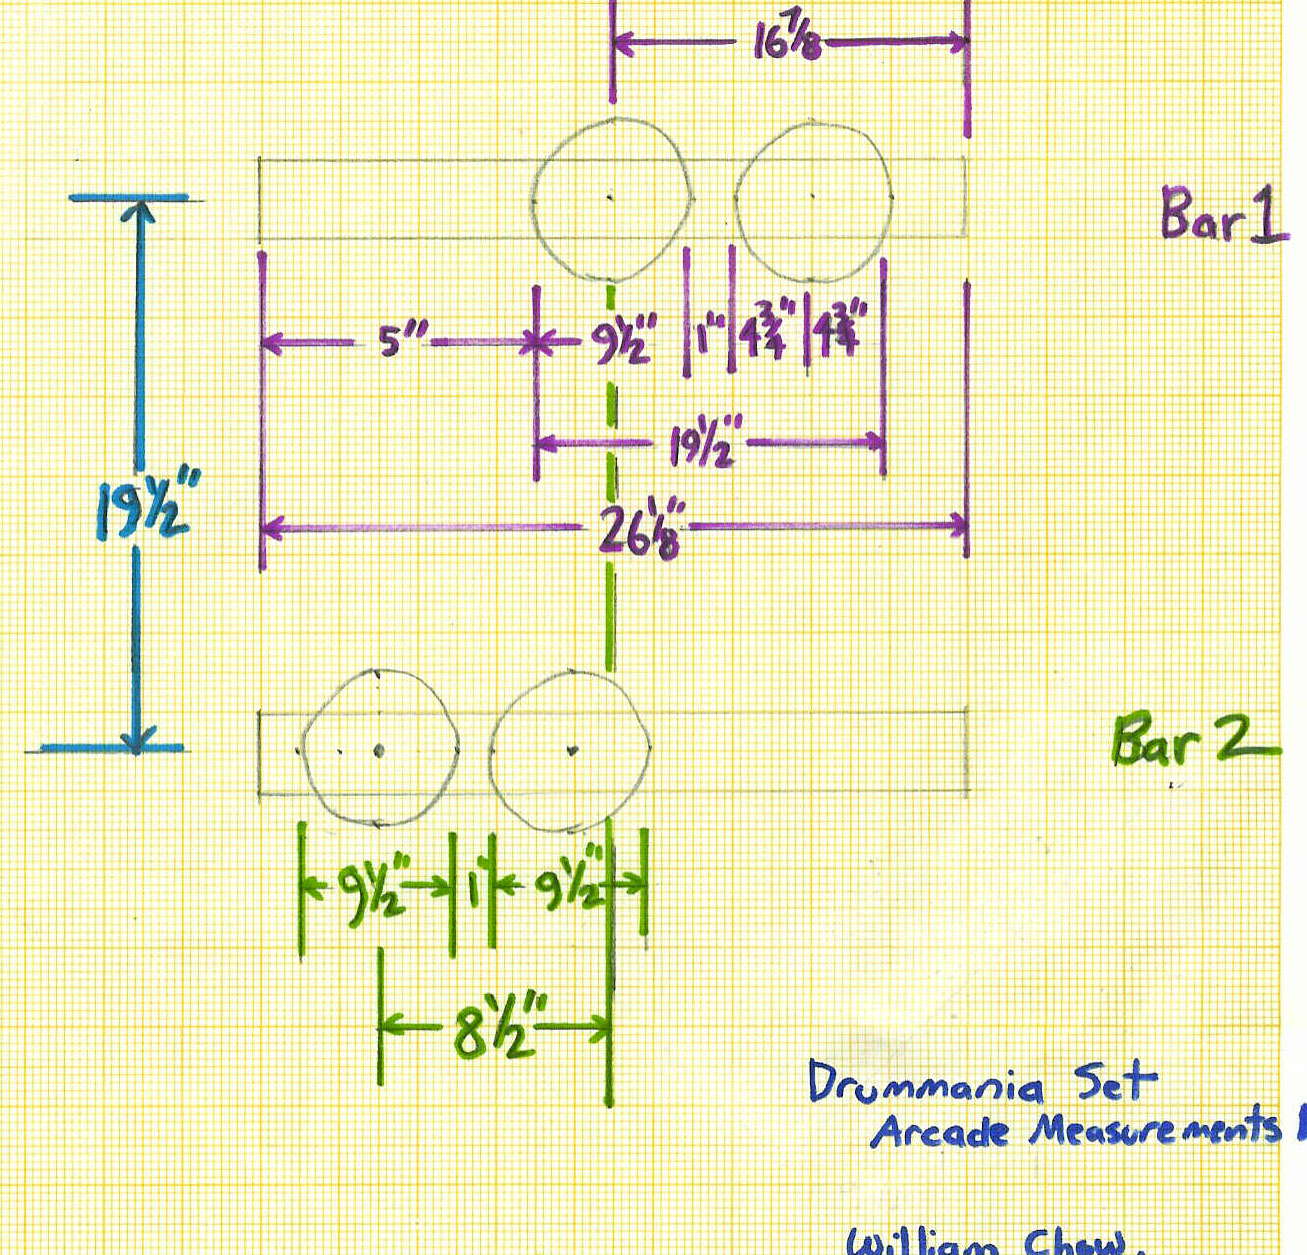 16 7/8
Bar 1
5" 9 1/2" 1" 4 3/4" 4 3/4"
19 1/2"
19 1/2"
26 1/8"
Bar 2
9 1/2" 1" 9 1/2"
8 1/2"
Drummania Set
Arcade Measurements
William Chow.